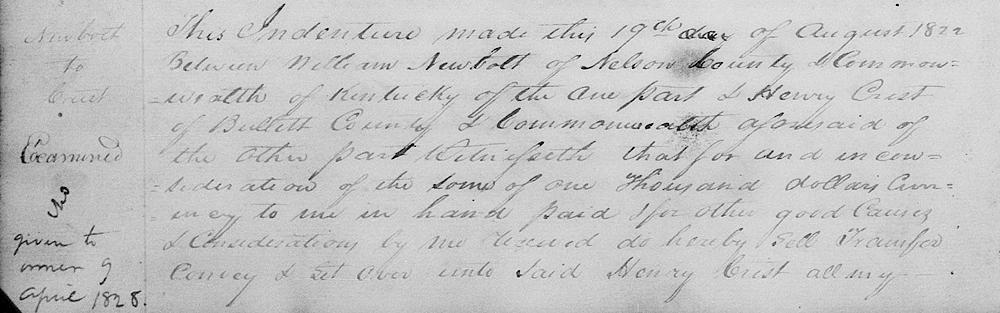 Newbolt
to
Crist
Examined
given to
owner 9
April 1828.
This Indenture made this 19th day of August 1822
Between William Newbolt of Nelson County & Common=
=wealth of Kentucky of the One part & Henry Crist
of Bullitt County & Commonwealth aforesaid of
the Other part Witnesseth that for and in con=
=sideration of the some of one Thousand dollars Curr=
=incy to me in hand paid & for other good Causes
& Considerations by me received do hereby Sell Transfer
Convey & Set Over unto said Henry Crist all my